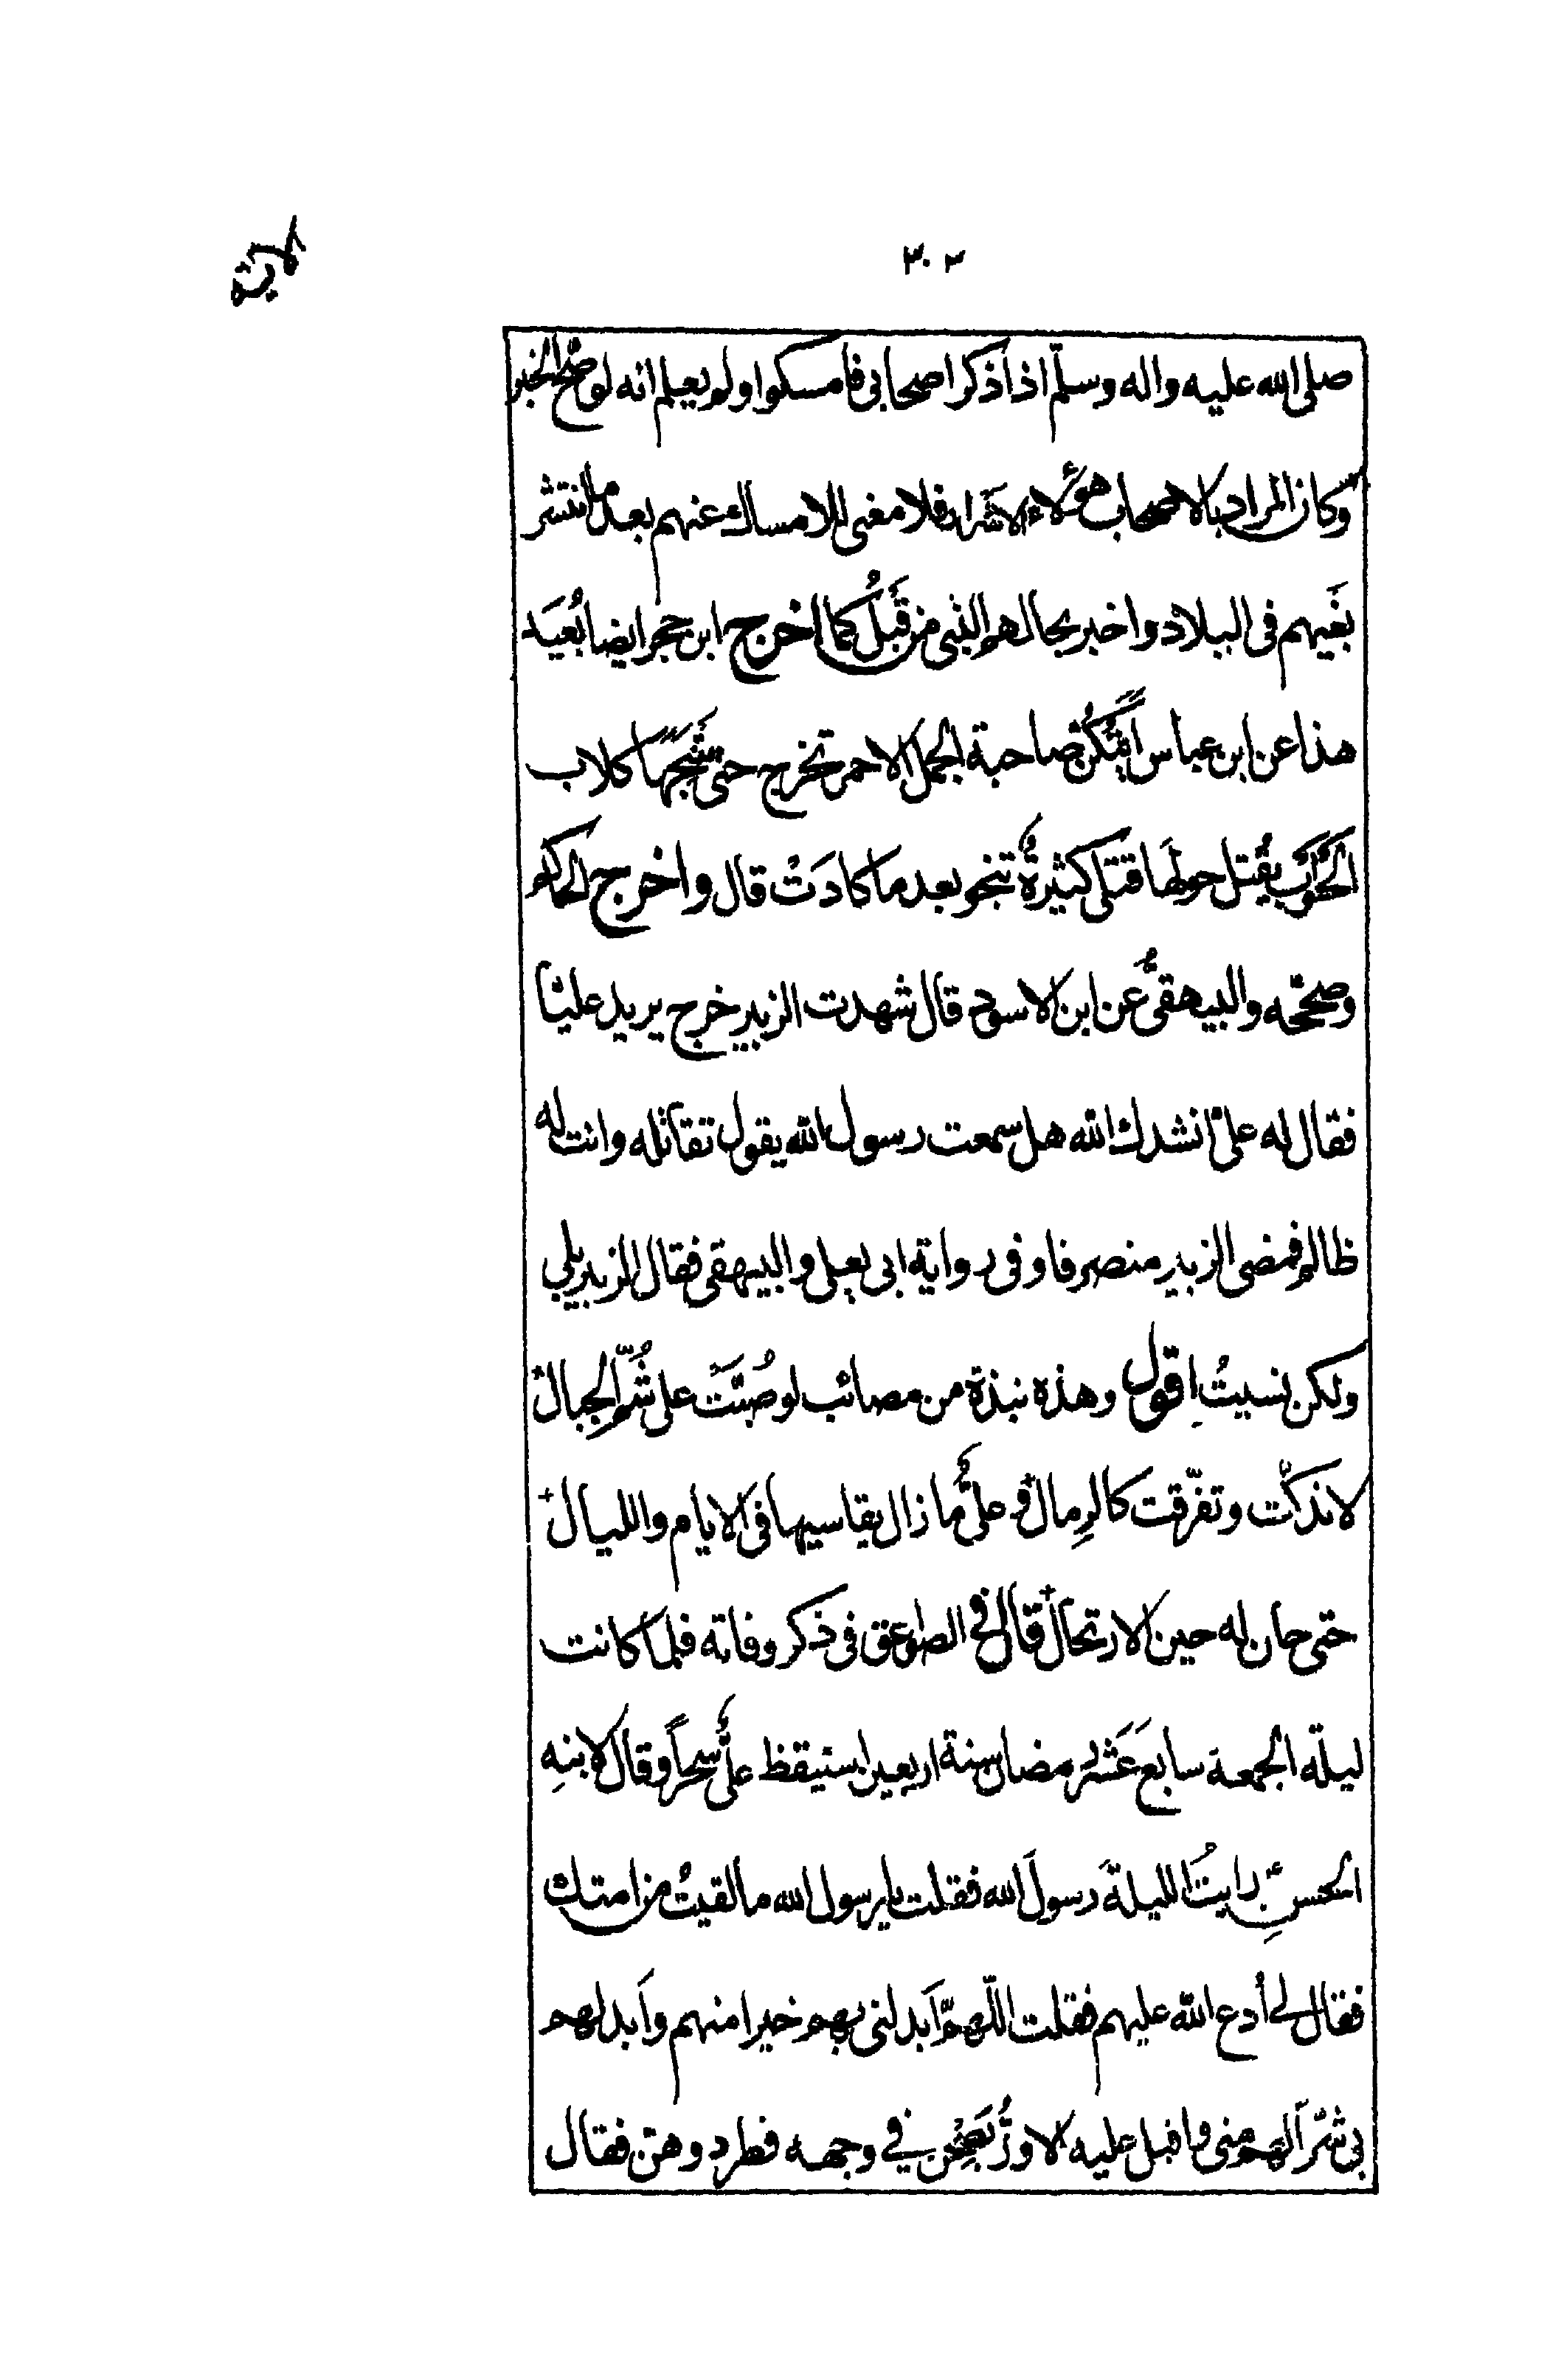 ٣٠٣
صلى الله عليه واله وسلّم اذا ذكر اصحابى فامسكوا ولم يعلم انه لو صحّ الخبر
وكان المراد بالاصحاب هؤلاء الاشرار فلا معنى للامساك عنهم بعد ما انتشر
بغيهم فى البلاد واخبر بحالهم النبى من قبلُ كما اخرج ابن حجر ايضا بُعَيد
هذا عن ابن عباس ايتكن صاحبة الجمل الاحمر تخرج حتى تنبحها كلاب
الحَوأب يُقتل حولها قتلى كثيرةٌ تنجو بعد ما كادَتْ قال واخرج الحاكم
وصحّحه والبيهقىُّ عن ابن الاسود قال شهدت الزبير خرج يريد عليّا
فقال له علىّ انشدك الله هل سمعت رسول الله يقول تقاتله وانت له
ظالم فمضى الزبير منصرفا وفى رواية ابى يعلى والبيهقى فقال الزبير بلى
ولكن نسيتُ اقول وهذه نبذة من مصائب لو صُبَّتْ على شُمّ الجبال
لاندكّت وتفرّقت كالرِمال و علىٌّ ما زال يقاسيها فى الايام والليال
حتى حان له حين الارتحال قال في الصواعق فى ذكر وفاته فلما كانت
ليلة الجمعة سابع عَشَر رمضان سنة اربعين استيقظ علىٌّ سحراً وقال لابنهِ
الحسنِ رايتُ الليلةَ رسولَ الله فقلت يا رسول الله ما لقيتُ من امتك
فقال لي أدع الله عليهم فقلت اللّهمّ اَبدلنى بهم خيرا منهم واَبدلهم
بى شرّا لهم منى واقبل عليه الاوزُّ يَصِحْن في وجهه فطردوهنّ فقال